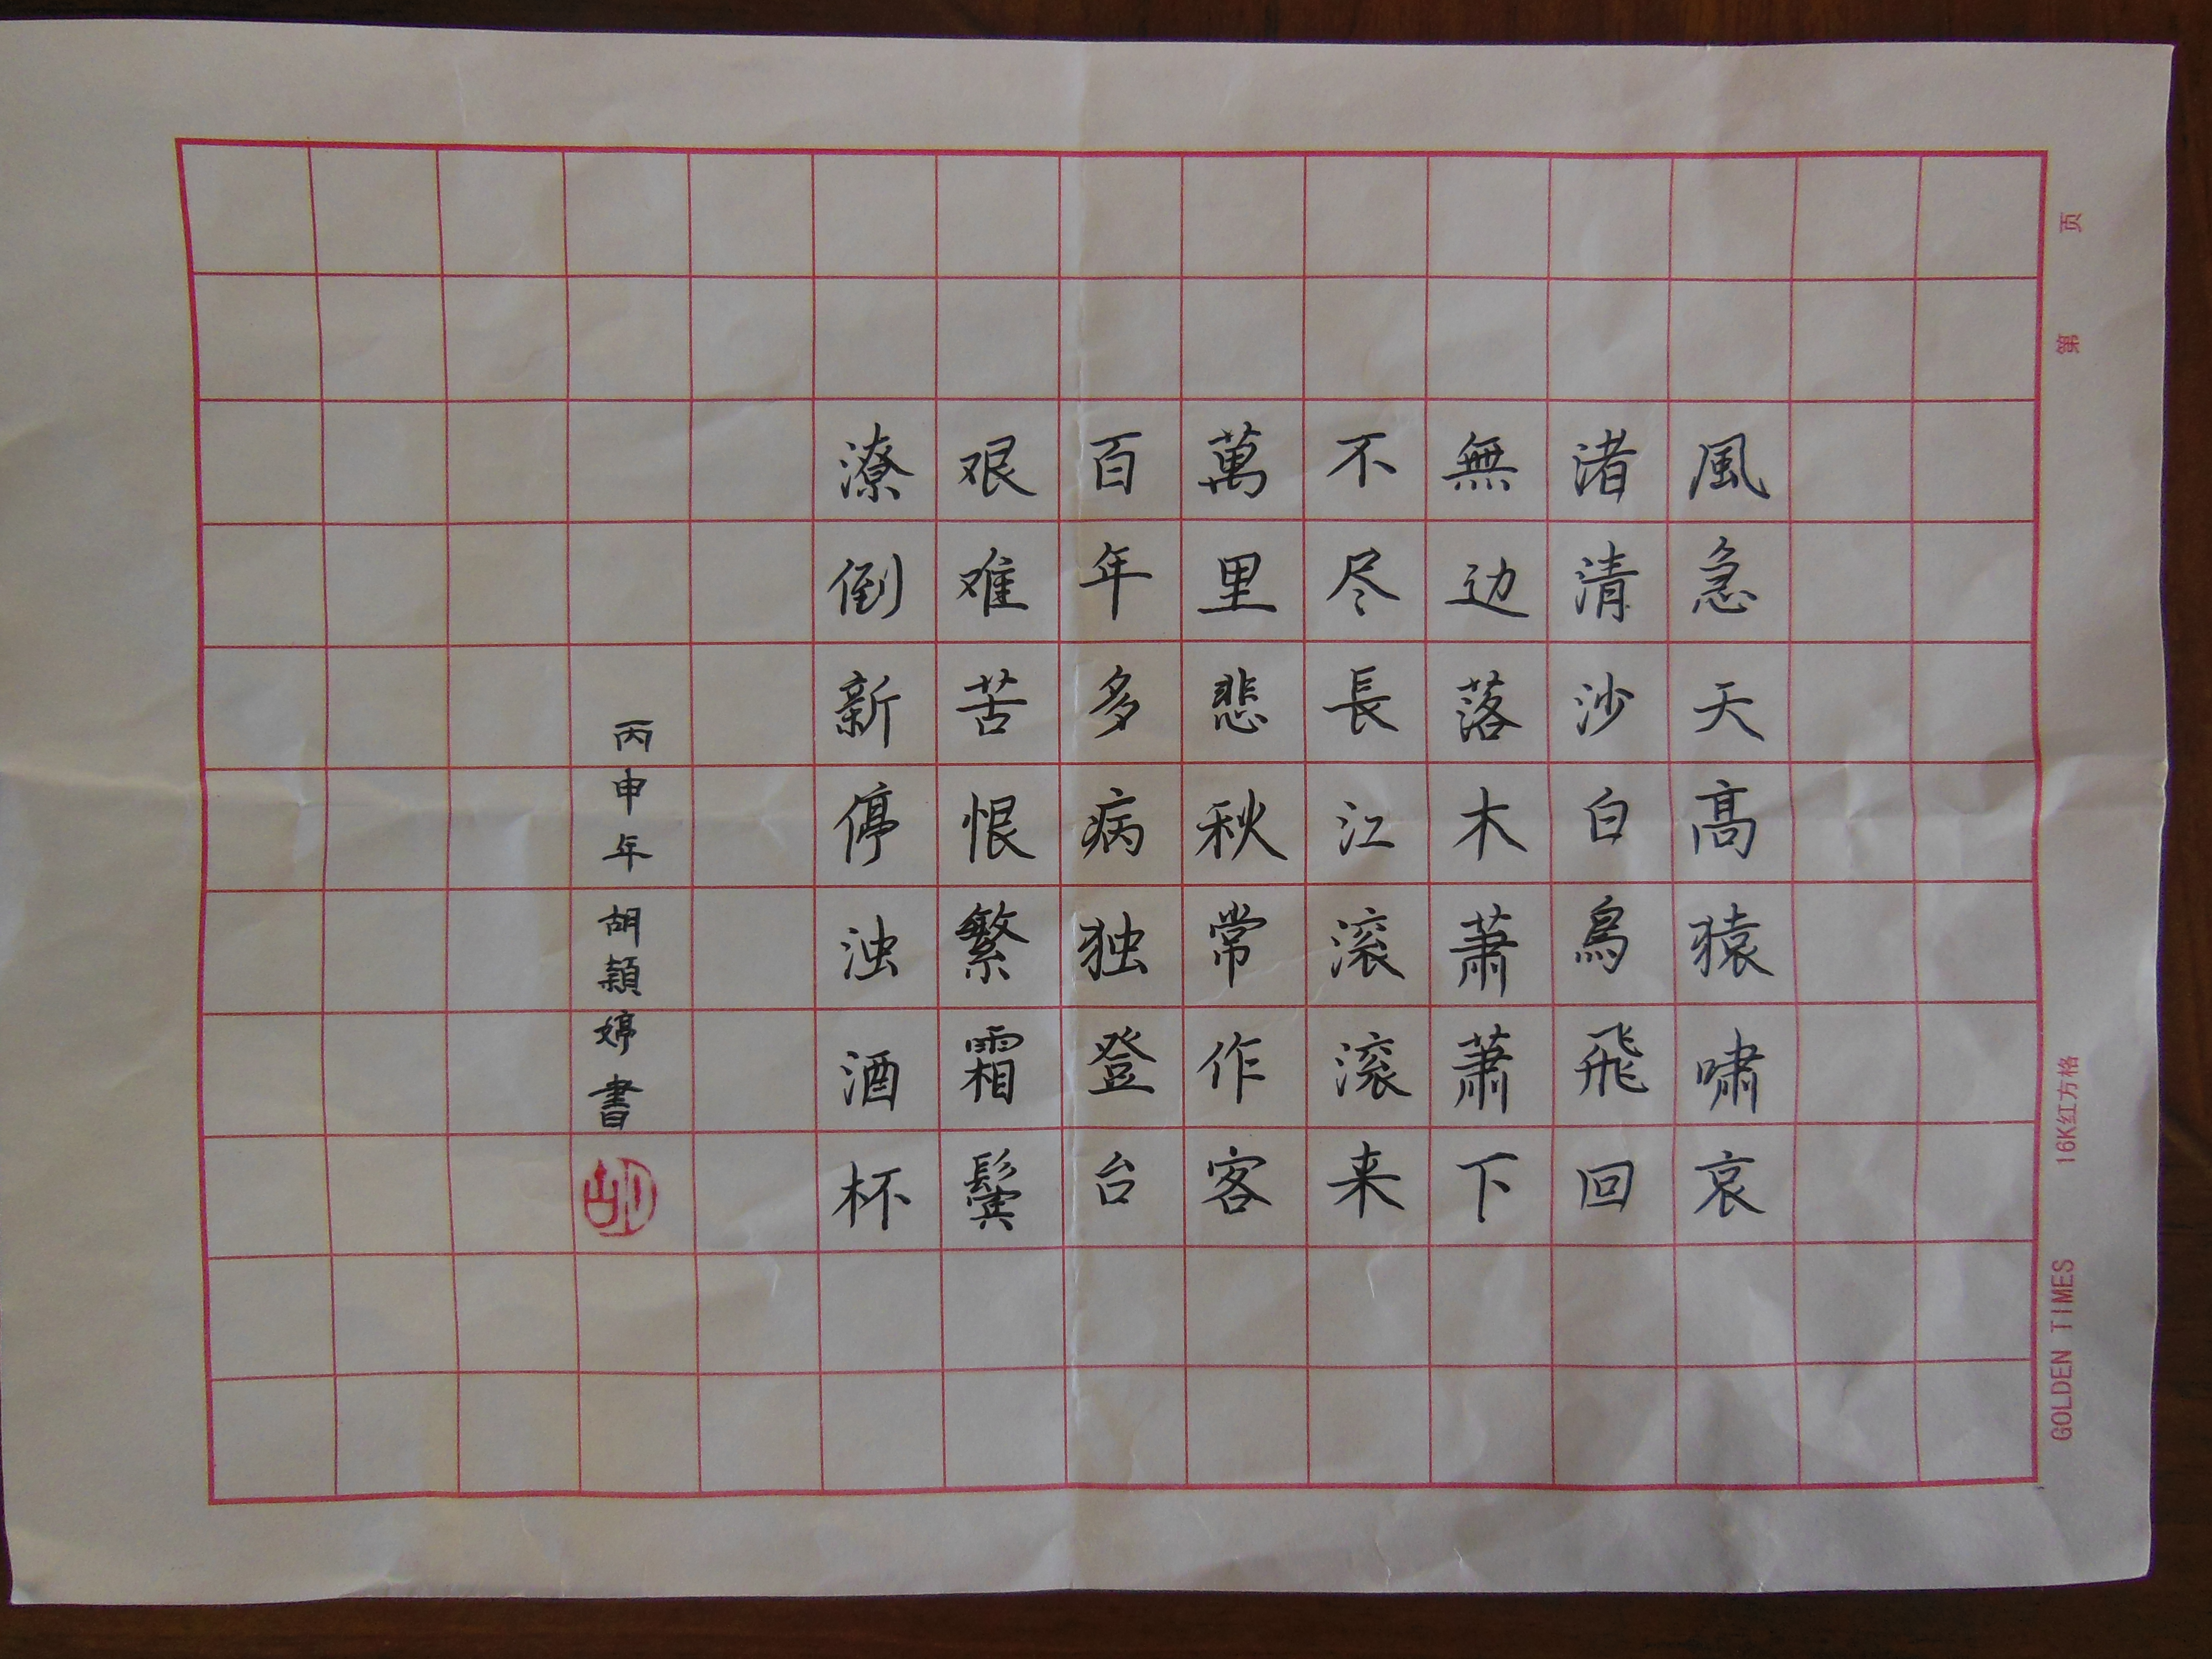 風急天髙猿啸哀
渚清沙白鳥飛回
無边落木萧萧下
不尽長江滚滚来
萬里悲秋常作客
百年多病独登台
艰难苦恨繁霜鬓
潦倒新停浊酒杯
丙申年 胡穎婷書
胡
第 页
16K红方格
GOLDEN TIMES